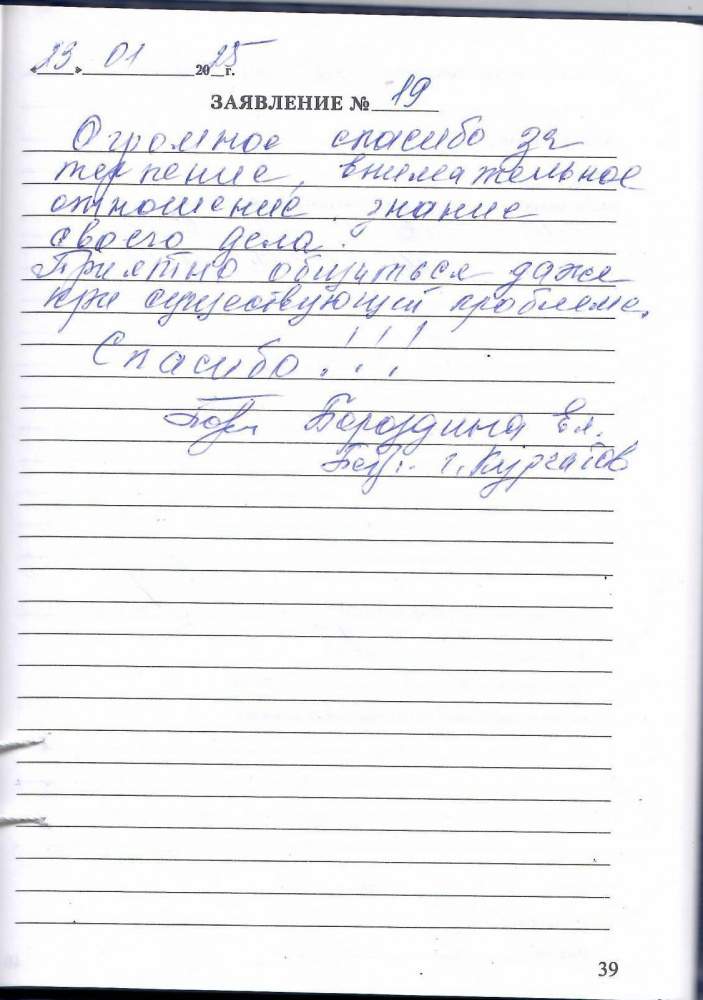 «23» 01 2025 г.
ЗАЯВЛЕНИЕ № 19
Огромное спасибо за
терпение, внимательное
отношение, знание
своего дела.
Приятно общаться даже
при существующей проблеме.
Спасибо!!!
Бороздина Ел.
г. Курчатов
39